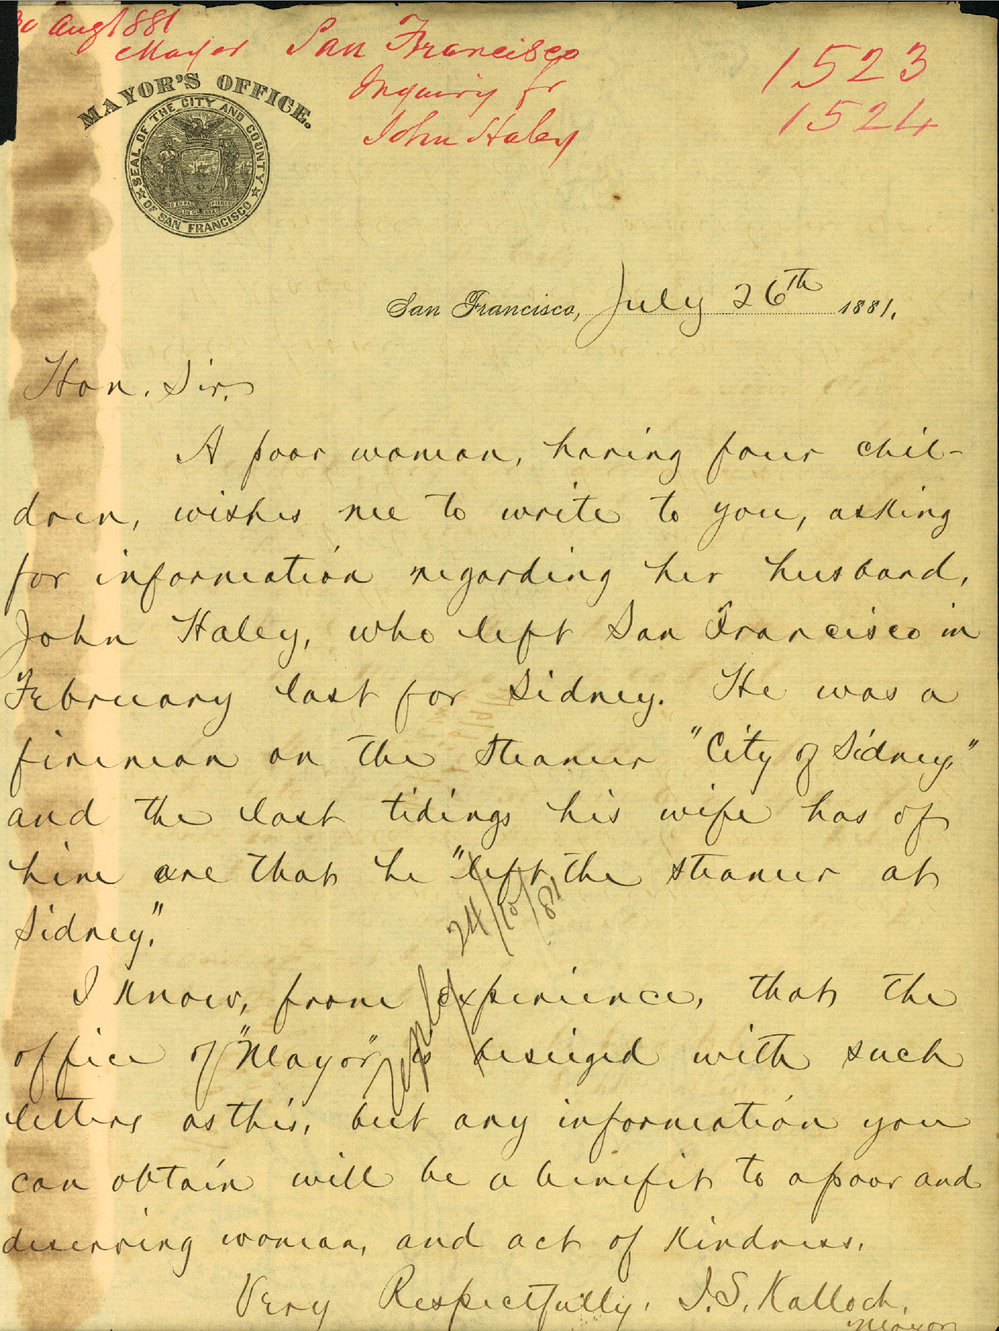 30 Aug 1881
Mayor San Francisco
Inquiry fr
John Haley
1523
1524
MAYOR'S OFFICE.
SEAL OF THE CITY AND COUNTY
OF SAN FRANCISCO
San Francisco, July 26th 1881.
Hon. Sir,
A poor woman, having four chil-
dren, wishes me to write to you, asking
for information regarding her husband,
John Haley, who left San Francisco in
February last for Sidney. He was a
fireman on the steamer "City of Sidney"
and the last tidings his wife has of
him are that he "left the steamer at
Sidney."
24/10/81
I know, from experience, that the
office of "Mayor" is besieged with such
letters as this, but any information you
can obtain will be a benefit to a poor and
deserving woman, and act of kindness.
Very Respectfully, I. S. Kalloch,
Mayor